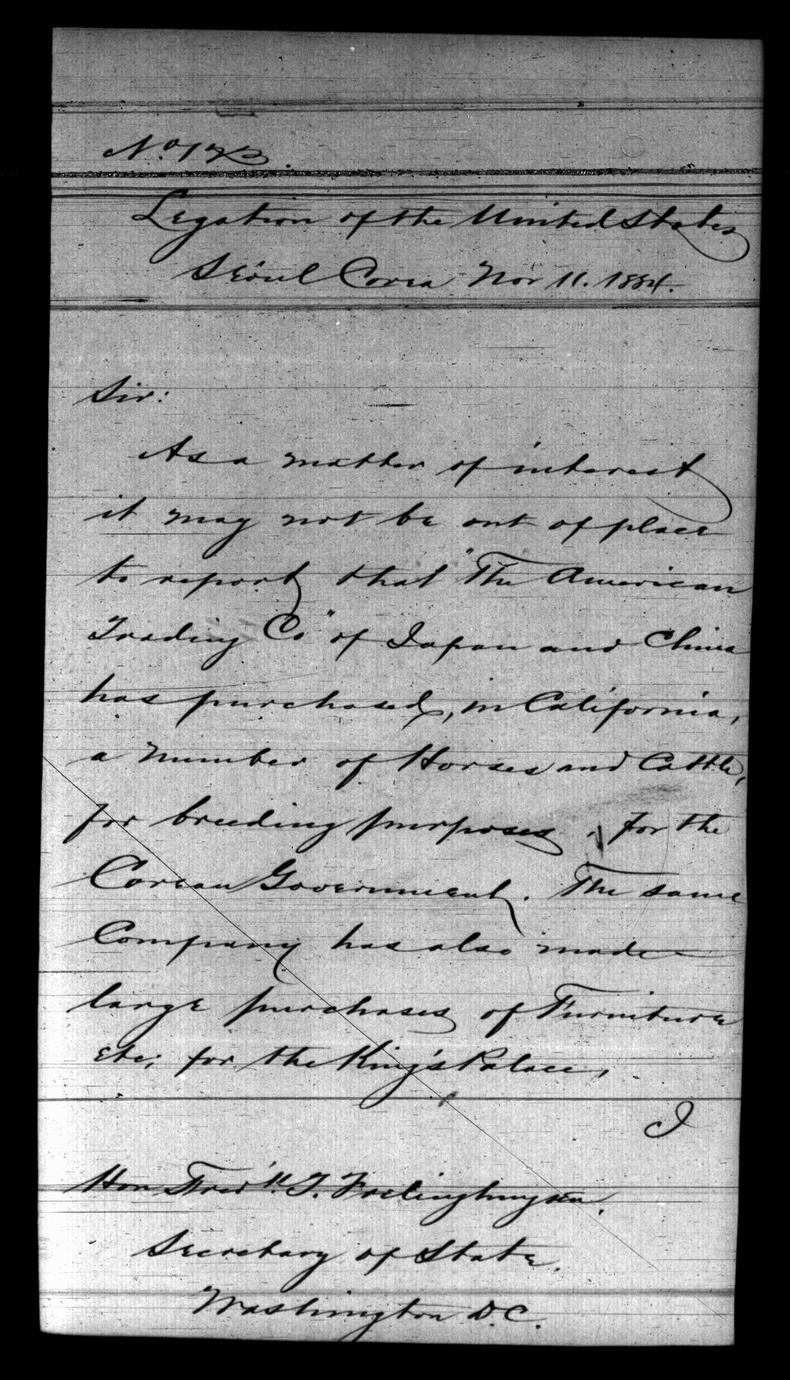 No. 123.
Legation of the United States
Séoul Corea Nov 11. 1884.
Sir:
As a matter of interest
it may not be out of place
to report that "The American
Trading Co" of Japan and China
has purchased, in California,
a number of Horses and Cattle,
for breeding purposes, for the
Corean Government. The same
Company has also made
large purchases of Furniture
etc; for the King's Palace,
I
Hon. Fred'k. T. Frelinghuysen.
Secretary of State.
Washington D.C.